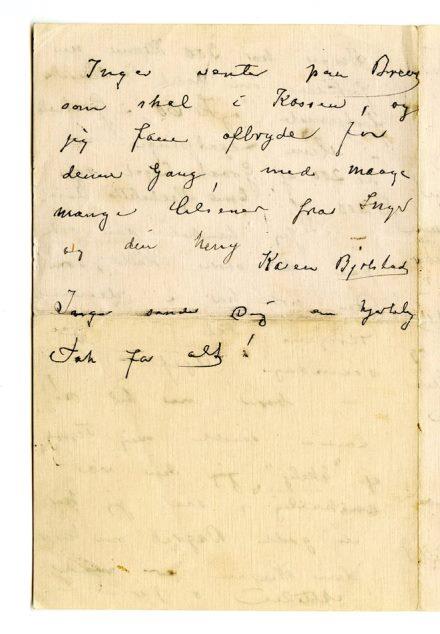 Inger venter paa Brevet
som skal i Kassen, og
jeg faar afbryde for
denne Gang, med mange
mange Hilsener fra Inger
og din
Karen Bjølstad
Inger sender Dig en hjertelig
Tak for alt!